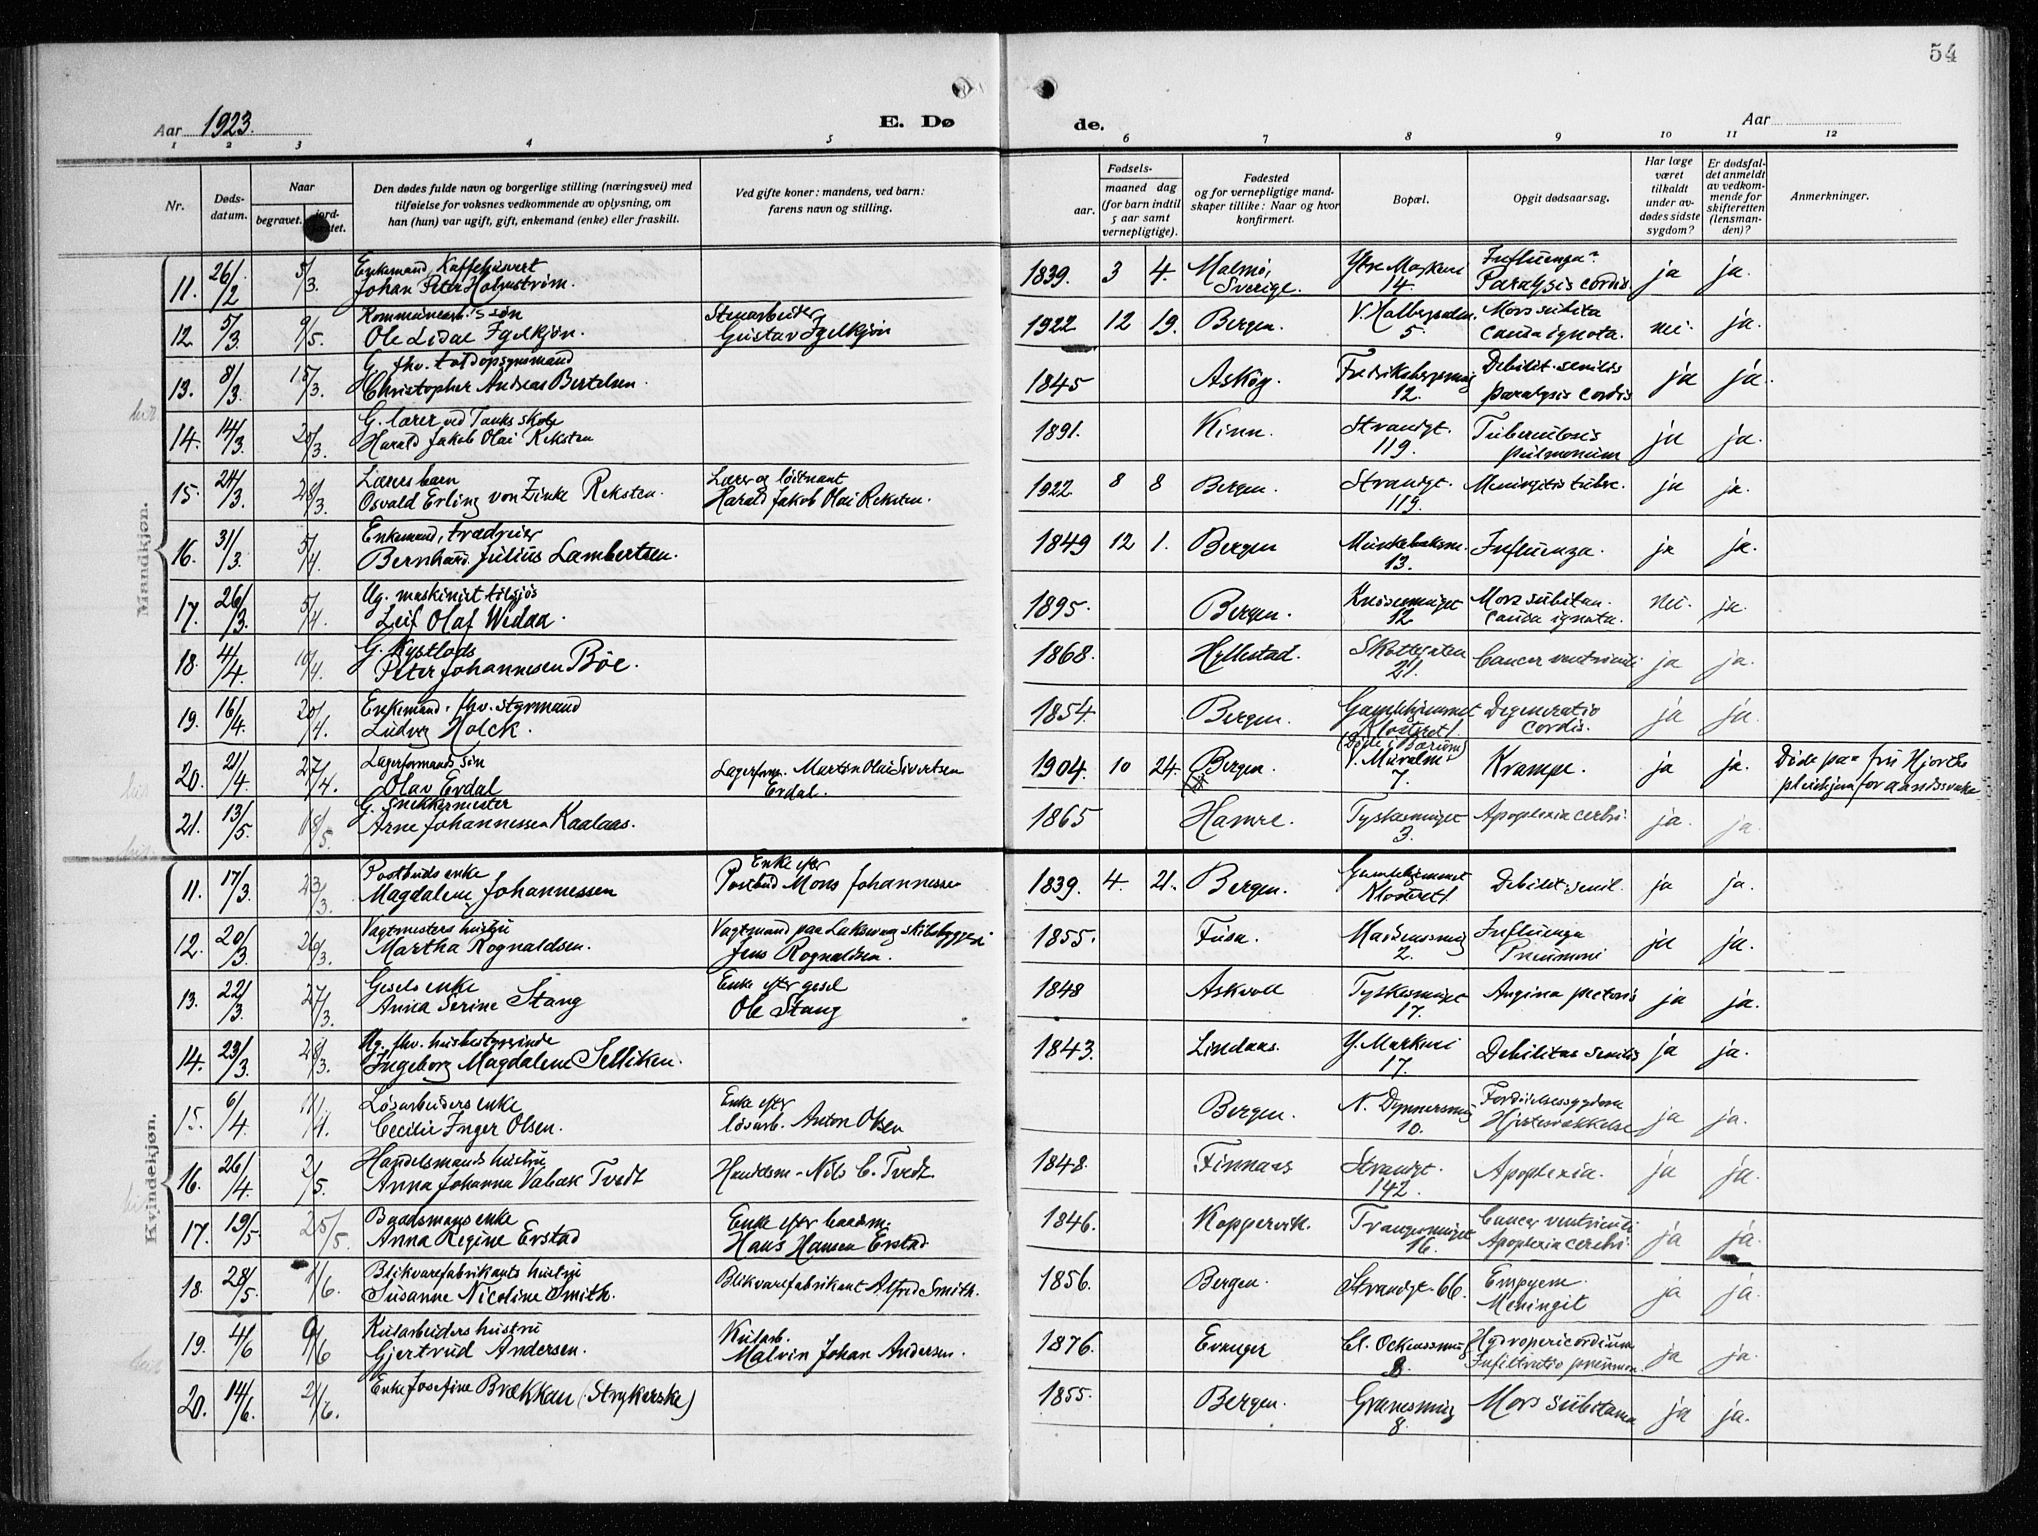 54
Aar 1923.
E. Dø
de.
Aar
1 2 3 4 5 6 7 8 9 10 11 12
Nr.
Døds-
datum.
Naar
begravet.
jord-
fæstet.
Den dødes fulde navn og borgerlige stilling (næringsvei) med
tilføielse for voksnes vedkommende av oplysning, om
han (hun) var ugift, gift, enkemand (enke) eller fraskilt.
Ved gifte koner: mandens, ved barn:
farens navn og stilling.
Fødsels-
aar.
maaned dag
(for barn indtil
5 aar samt
vernepligtige).
Fødested
og for vernepligtige mand-
skaper tillike: Naar og hvor
konfirmert.
Bopæl.
Opgit dødsaarsag.
Har læge
været
tilkaldt
under av-
dødes sidste
sygdom?
Er dødsfal-
det anmeldt
av vedkom-
mende for
skifteretten
(lensman-
den)?
Anmerkninger.
Mandkjøn.
11. 26/2 5/3. Enkemand, Kaffehusvert
Johan Peter Holmström. 1839. 3 4. Malmö, Sverige. Ytre Markevei 14. Influenza Paralysis cordis ja ja.
12. 5/3. 9/5. Kommunearb.s søn
Ole Lidal Igelkjøn. Stenarbeider Gustav Igelkjøn 1922 12 19. Bergen. V. Holbergsalm. 5 Mors subita causa ignota. nei. ja.
13. 8/3. 15/3. G. fhv. toldopsynsmand
Christopher Andreas Bertelsen. 1845 Askøy. Fredriksbergsmug 12. Debilit. senilis paralysis cordis ja ja.
14. 14/3. 20/3. G. lærer ved Tanks skole
Harald Jakob Olai Reksten 1891. Kinn. Strandgt. 119. Tuberculosis pulmonum ja ja.
15. 24/3. 28/3. Læreres barn
Osvald Erling von Zinke Reksten. Lærer og løitnant Harald Jakob Olai Reksten. 1922 8 8 Bergen. Strandgt. 119. Meningitis tuberc. ja ja.
16. 31/3. 5/4. Enkemand, trædreier
Bernhard Julius Lambertsen. 1849 12 1. Bergen Munkebæksm. 13. Influenza. ja ja.
17. 26/3. 5/4. Ug. maskinist tilsjøs
Leif Olaf Widaa. 1895. Bergen. Knøsesmuget 12 Mors subitan. causa ignota. nei. ja.
18. 4/4. 10/4. G. Kystlods
Peter Johannesen Böe. 1868. Hyllestad. Skottegaten 21. Cancer ventriculi ja ja.
19. 16/4. 20/4. Enkemand, fhv. styrmand
Ludvig Holck. 1854. Bergen. Gamlehjemmet Klosteret 1. Degeneratio cordis. ja ja.
20. 21/4. 27/4. Lagerformands søn
Olav Erdal Lagerform. Martin Olai Sivertsen Erdal. 1904. 10 24. Bergen. (Døde i Bærum) V. Muralm. 7. Krampe. ja ja. Døde paa fru Hjorths pleiehjem for aandssvake
21. 13/5. 18/5. G. Snekkermester
Arne Johannessen Kaalaas. 1865 Hamre. Tyskesmuget 3. Apoplexia cerbri. ja. ja.
Kvindekjøn.
11. 17/3. 23/3. Postbuds enke
Magdalene Johannessen Enke efter Postbud Mons Johannessen 1839. 4. 21. Bergen. Gamlehjemmet Klosteret 1. Debilit. senil. ja ja.
12. 20/3 26/3. Vagtmesters hustru
Martha Rognaldsen. Vagtmand paa Laksevag skibsbyggeri Jens Rognaldsen. 1855. Fusa. Markussmug 2. Influenza Pneumoni ja ja.
13. 22/3. 27/3. Gesels enke
Anna Serine Stang Enke efter gesel Ole Stang 1848 Askvoll Tyskesmuget 17. Angina pectoris ja ja.
14. 23/3. 28/3. Ug. fhv. husbestyrerinde
Ingeborg Magdalene Selliken. 1843. Lindaas. Y. Markevei 17. Debilitas senilis ja ja.
15. 6/4. 11/4. Løsarbeiders enke
Cecilie Inger Olsen. Enke efter løsarb. Anton Olsen Bergen. N. Dynnersmug 10. Fordøielsessygdom Hjertesvækkelse ja ja.
16. 26/4. 2/5. Handelsmands hustru
Anna Johanna Tvedt Handelsm. Nils C. Tvedt. 1848. Finnaas Strandgt. 142. Apoplexia. ja ja.
17. 19/5 25/5. Baadsmans enke
Anna Regine Erstad Enke efter baadsm. Hans Hansen Erstad 1846. Koppervik. Trangesmuget 16. Cancer ventriculi Apoplexia cerebri. ja ja.
18. 28/5. 1/6. Blikvarefabrikants hustru
Susanne Nicoline Smith. Blikvarefabrikant Alfred Smith. 1856. Bergen. Strandgt. 66. Empyem. Meningit ja ja.
19. 4/6 9/6 Kularbeiders hustru
Gjertrud Andersen. Kularb. Malvin Johan Andersen. 1876. Evanger Cl. Ockenssmug 8. Hydropericordium Infiltratio pneumon. ja ja.
20. 14/6. 21/6. Enke Josefine Brekkan (Strykerske) 1855. Bergen. Granesmug 8. Mors subitanea ja ja.